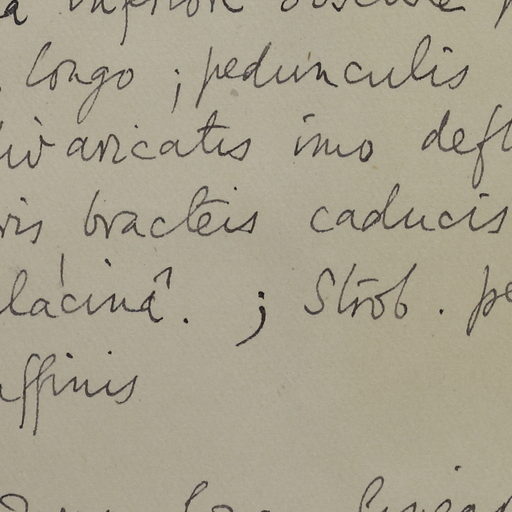 a inferiore obscure
longo ; pedunculis
divaricatis imo defl
ris bracteis caducis
lacinâ. ; Strob. pe
affinis